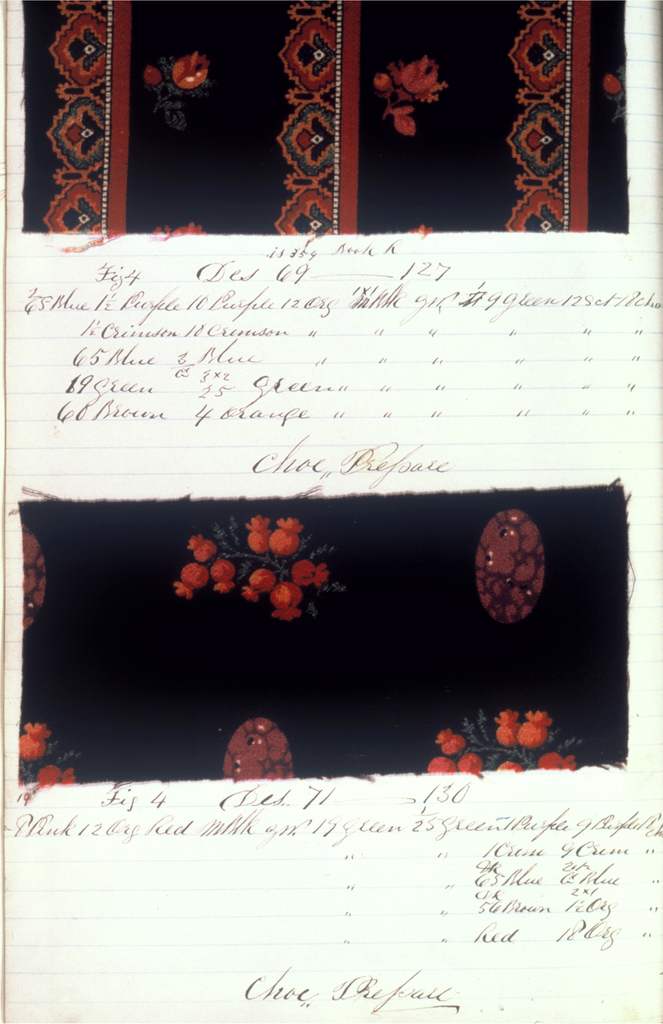 Book R
Fig 4 Des 69 — 127
65 Blue 1½ Purple 10 Purple 12 Org Blk 9 Green 12 Sct
1½ Crimson 10 Crimson " " " " " "
65 Blue 3 Blue " " " " "
19 Green 3x2 25 Green " " " " " "
60 Brown 4 Orange " " " " " "
Choc,, Prepare
19 Fig 4 Des. 71 — 130
Pink 12 Org Red Blk 19 Green ½5 Green 1 Purple 9 Purple
" " 1 Crim 9 Crim "
" " 65 Blue Blue "
" " 56 Brown 1½ Org "
" " Red 18 Org "
Choc,, Prepare